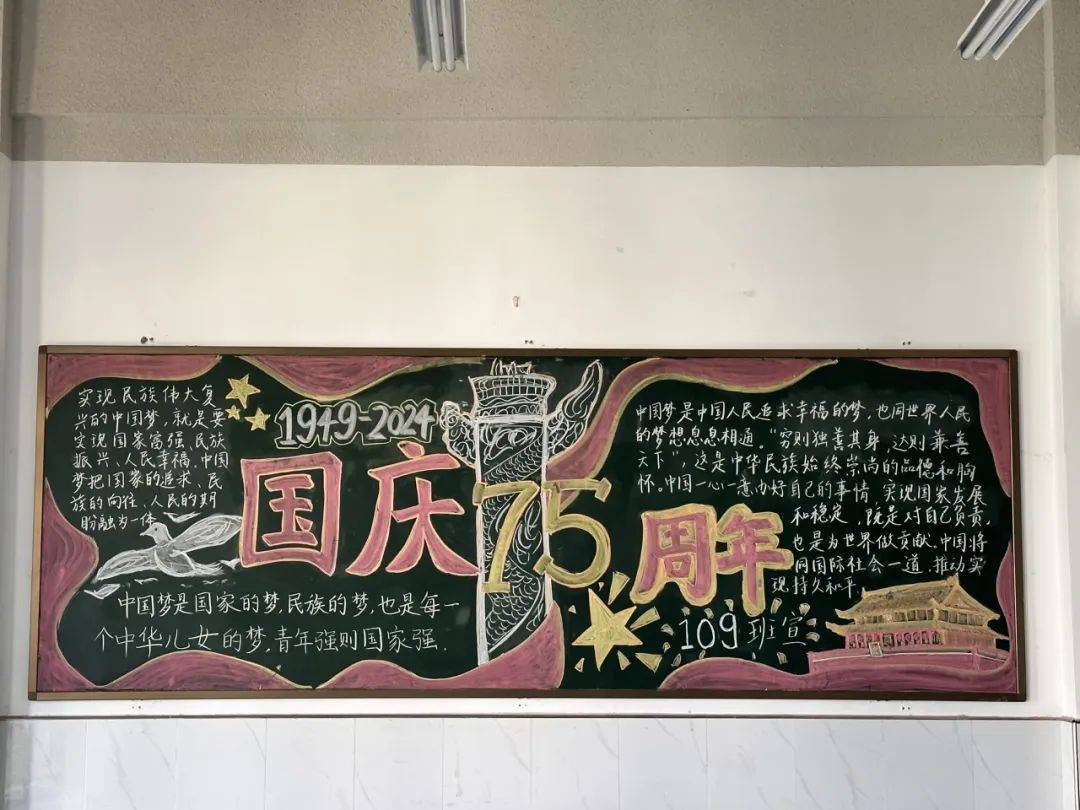 实现民族伟大复
兴的中国梦,就是要
实现国家富强、民族
振兴、人民幸福.中国
梦把国家的追求、民
族的向往、人民的期
盼融为一体.
1949-2024
国庆75周年
中国梦是国家的梦,民族的梦,也是每一
个中华儿女的梦,青年强则国家强.
中国梦是中国人民追求幸福的梦,也同世界人民
的梦想息息相通。“穷则独善其身,达则兼善
天下”,这是中华民族始终崇尚的品德和胸
怀。中国一心一意办好自己的事情,实现国家发展
和稳定,既是对自己负责,
也是为世界做贡献.中国将
同国际社会一道,推动实
现持久和平.
109班宣